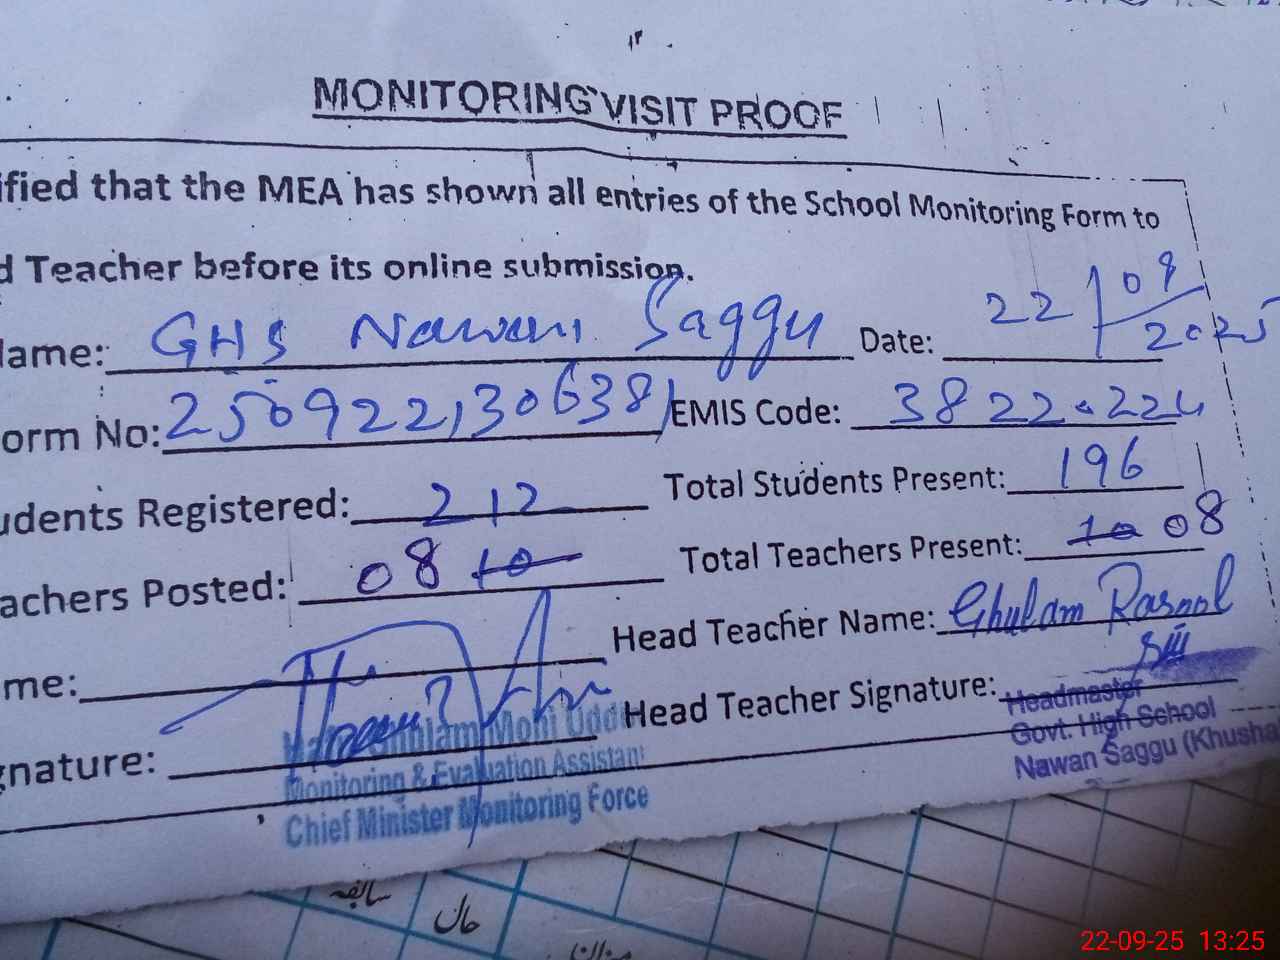 MONITORING VISIT PROOF
ified that the MEA has shown all entries of the School Monitoring Form to
d Teacher before its online submission.
lame: GHS Nawan Saggu Date: 22/09/2025
orm No: EMIS Code:
udents Registered: 212 Total Students Present: 196
achers Posted: 08 10 Total Teachers Present: 10 08
me: Head Teacher Name: Ghulam Rasool
gnature: Head Teacher Signature:
Mohi Udd
Monitoring & Evaluation Assistant
Chief Minister Monitoring Force
Headmaster
Govt. High School
Nawan Saggu (Khusha
سالقہ
حال
22-09-25 13:25